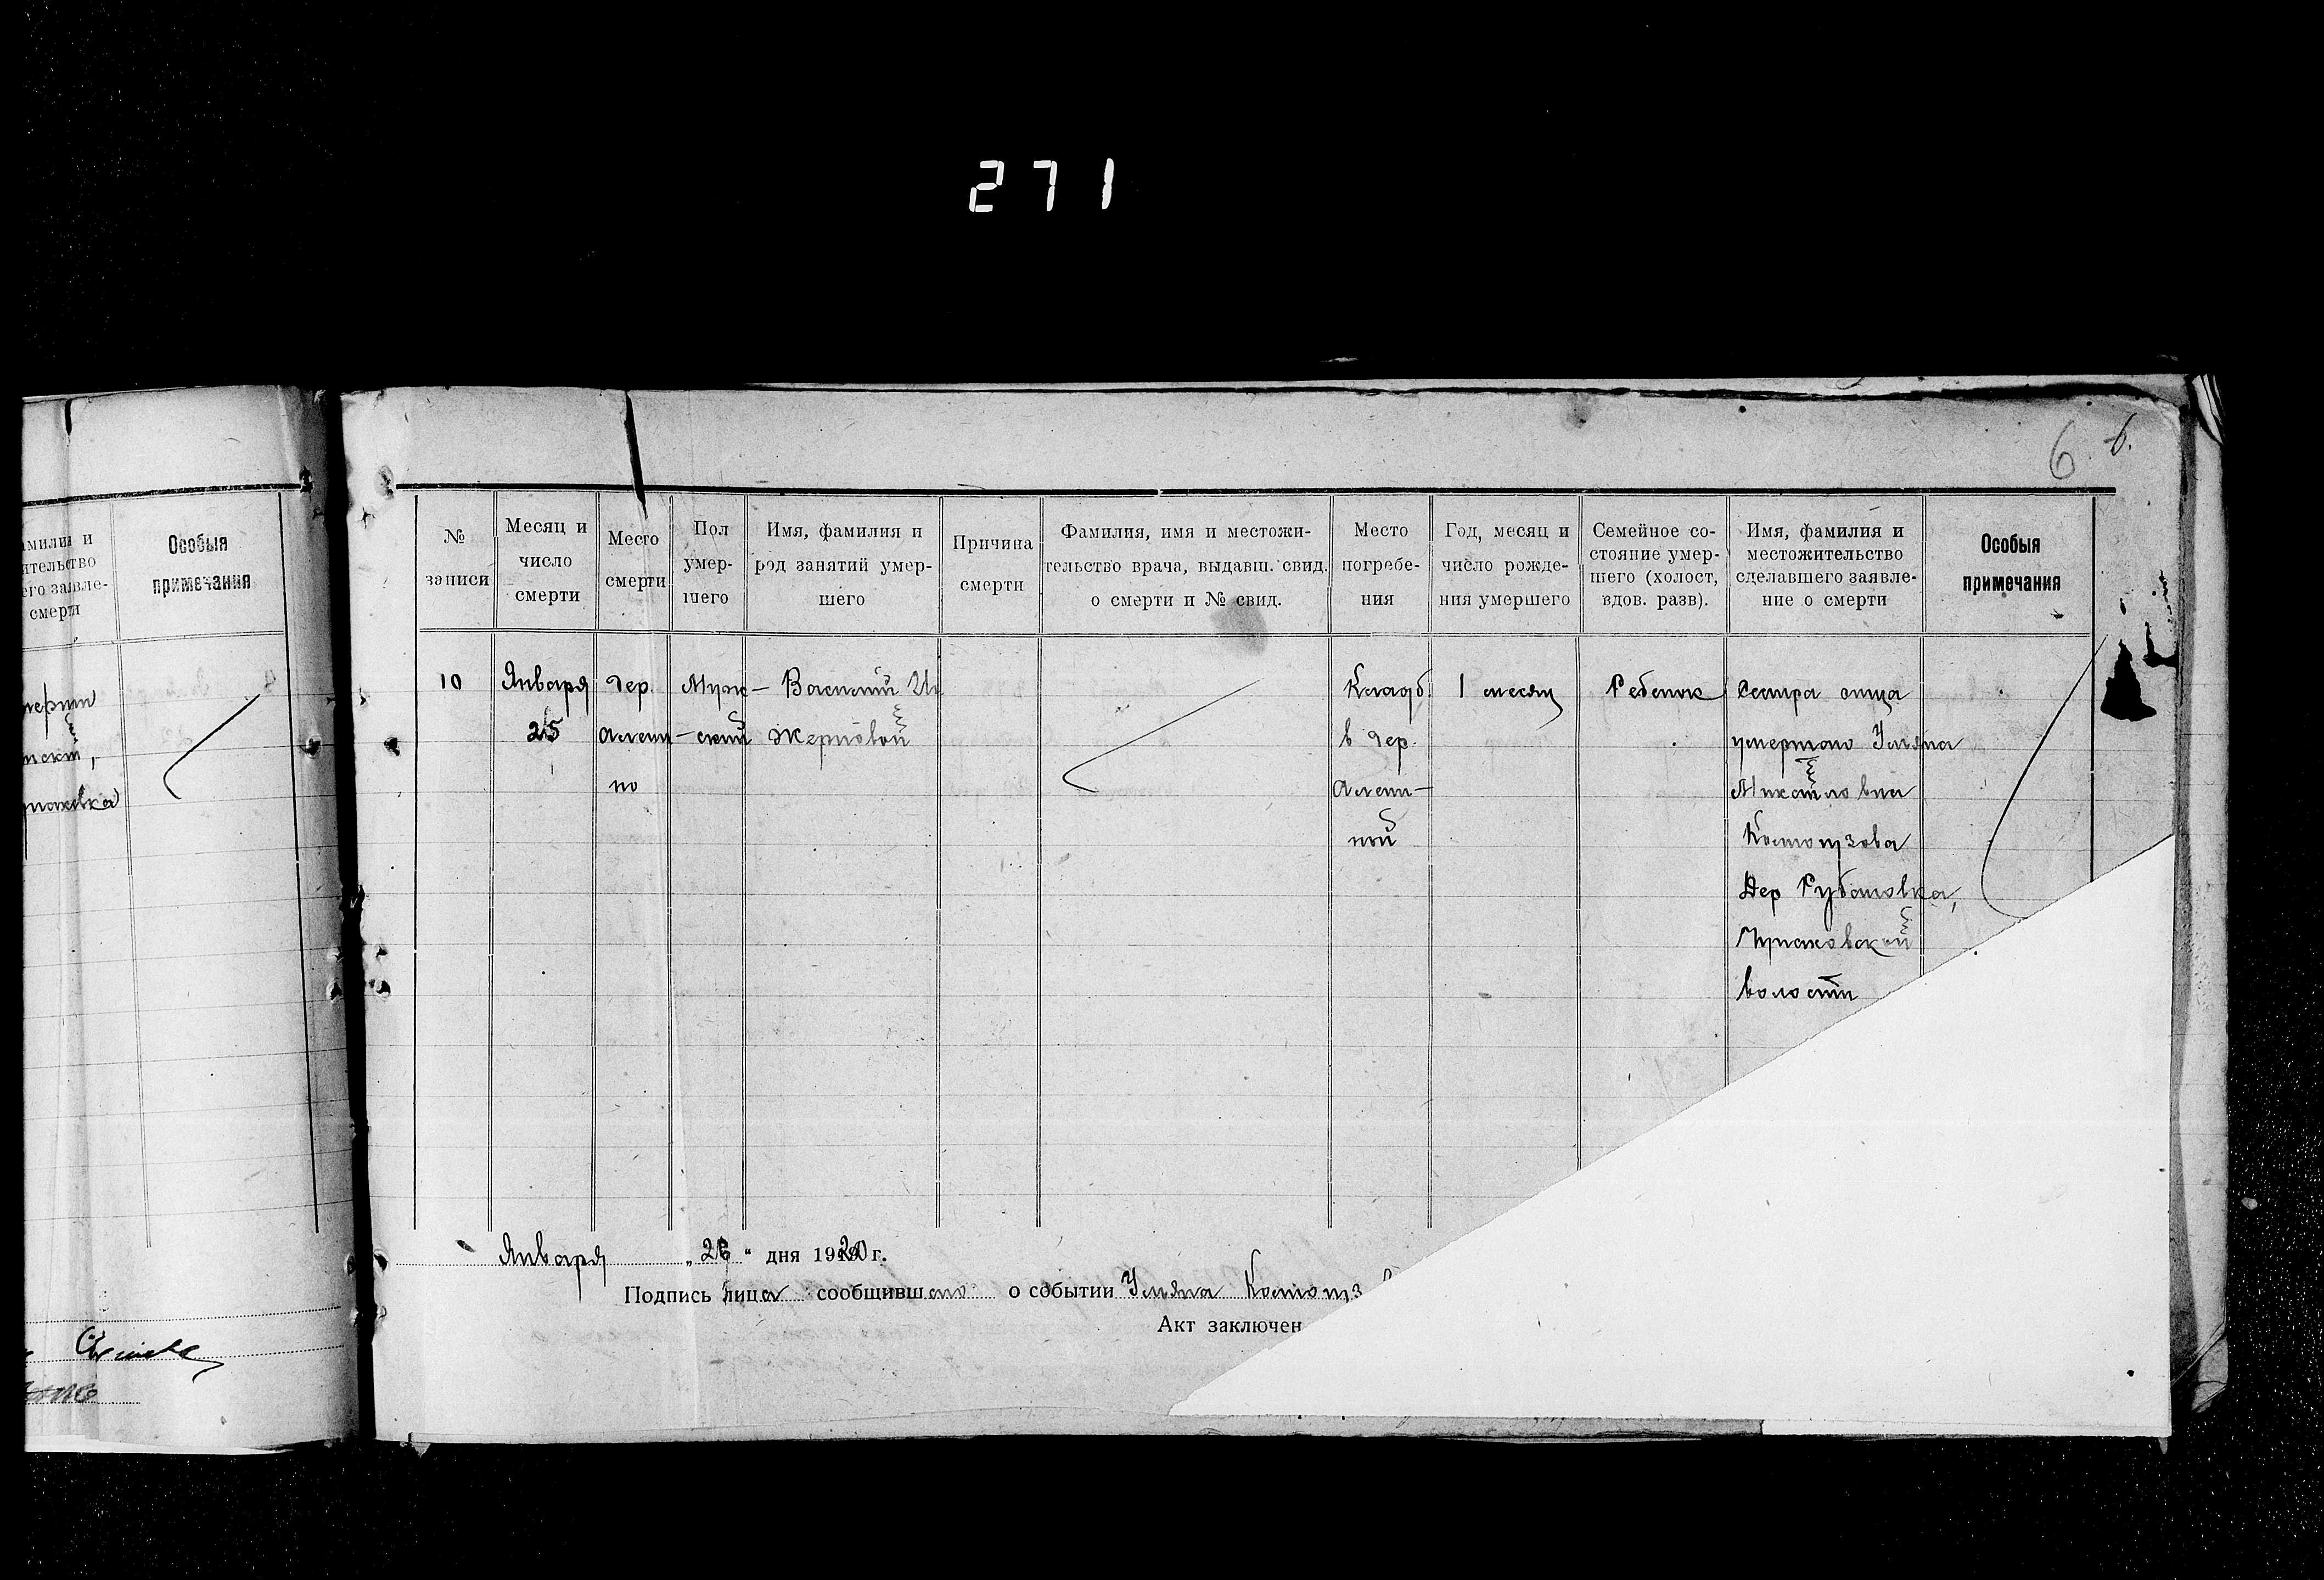 271
6 6.
амилия и
ительство
его заявле-
смерти
Особыя
примечания
№
записи
Месяц и
число
смерти
Место
смерти
Пол
умер-
шего
Имя, фамилия и
род занятий умер-
шего
Причина
смерти
Фамилия, имя и местожи-
тельство врача, выдавш. свид.
о смерти и № свид.
Место
погребе-
ния
Год, месяц и
число рожде-
ния умершего
Семейное со-
стояние умер-
шего (холост,
вдов. разв).
Имя, фамилия и
местожительство
сделавшего заявле-
ние о смерти
Особыя
примечания
10
Января
25
дер.
Алеш-
но
Муж-
ский
Василий
Кладб.
в дер.
Алеш-
ной
1 месяц
Ребенок
Сестра отца
умершаго Ульяна
Дер
волости
Января „ 26 “ дня 1920 г.
Подпись лица сообщившаго о событии Ульяна
Акт заключен